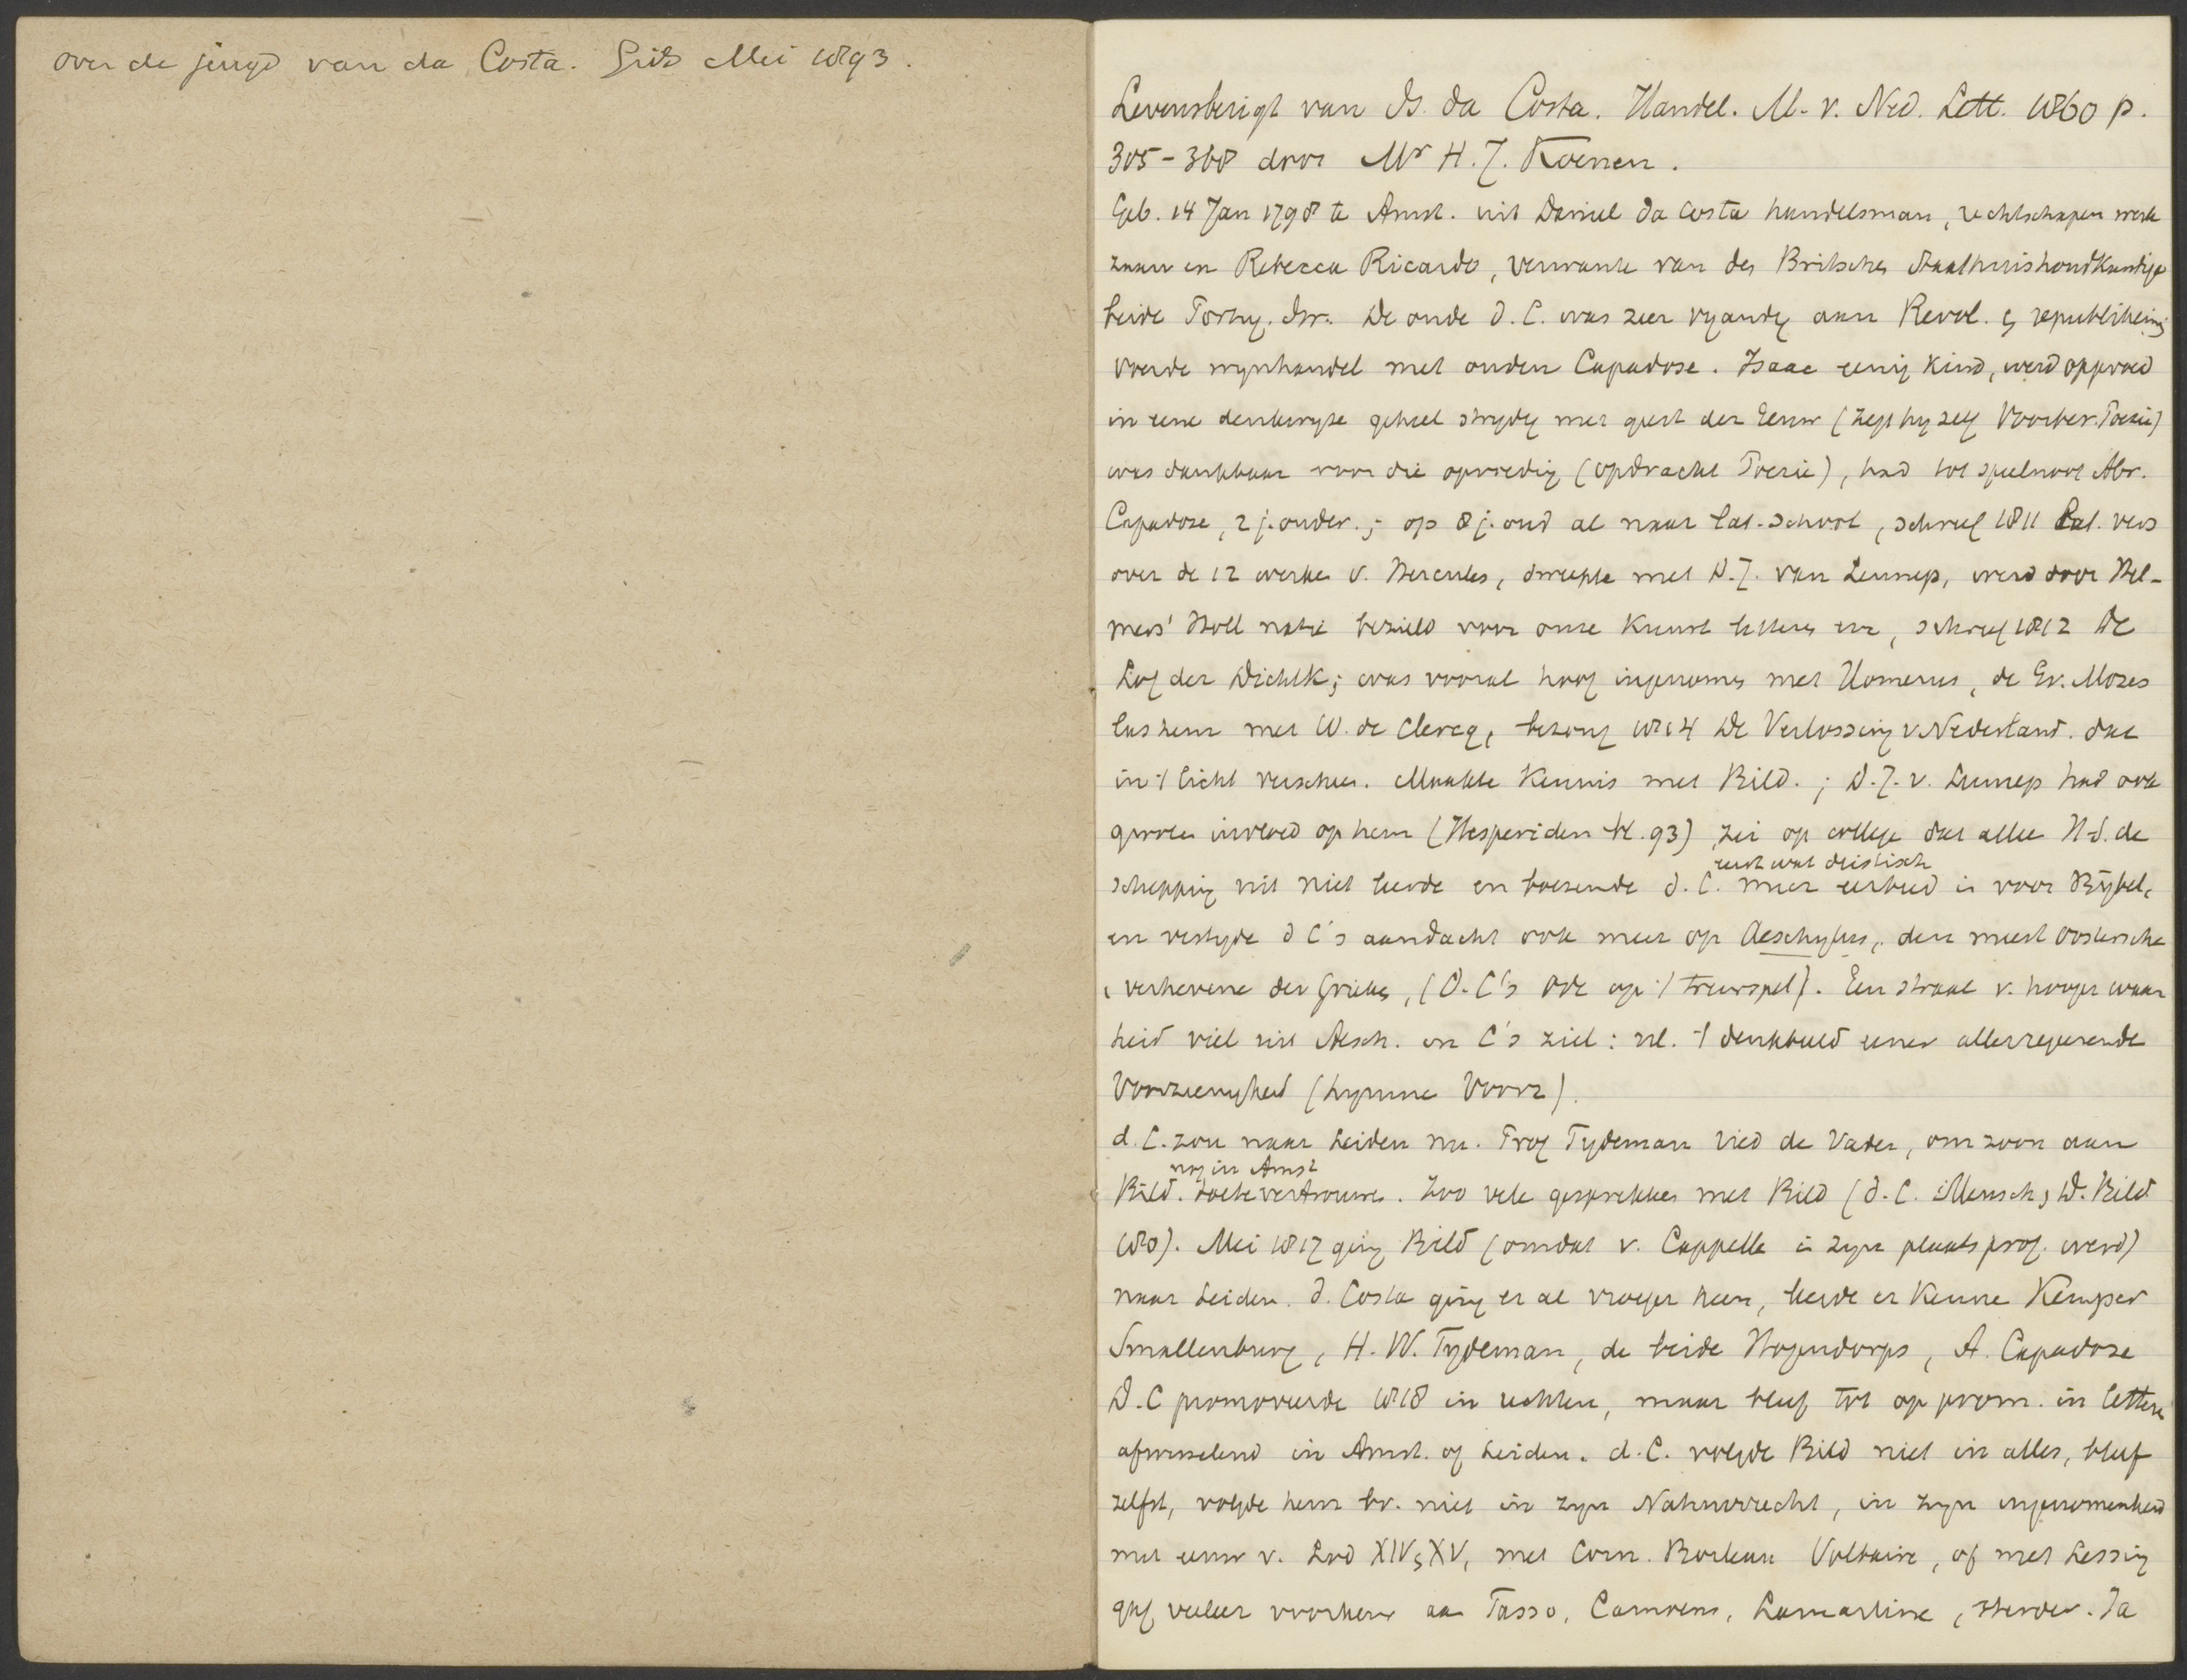 over de jeugd van da Costa. Gids Mei 1893.
Levensberigt van Is. da Costa. Handel. M. v. Ned. Lett. 1860 p.
305-368 door Mr H. J. Koenen.
Geb. 14 Jan 1798 te Amst. uit Daniel da Costa handelsman, rechtschapen werk
zaam en Rebecca Ricardo, verwante van den Britschen Staathuishoudkundige
beide Portug. Isr. De oude d. C. was zeer vyandig aan Revol. en republikeins
voerde wynhandel met ouden Capadose. Isaac eenig kind, werd opgevoed
in eene denkwyze geheel strydig met geest der Eeuw (zegt hy zelf Voorber. Poezie)
was dankbaar voor die opvoeding (opdracht Poezie), had tot speelnoot Abr.
Capadose, 2 j. ouder.; op 8 j. oud al naar Lat. school, schreef 1811 Lat. vers
over de 12 werken v. Hercules, dweepte met D. J. van Lennep, werd door Hel-
mers' Holl natie bezield voor onze Kunst letteren enz, schreef 1812 De
Lof der Dichtk; was vooral hoog ingenomen met Homerus, de Gr. Mozes
las hem met W. de Clercq, bezong 1814 De Verlossing v Nederland. dat
in 't licht verscheen. Maakte Kennis met Bild.; D. J. v. Lennep had ook
grooten invloed op hem (Hesperiden bl. 93), zei op college dat alleen H. S. de
eerst wat deistisch
schepping uit niet leerde en boezemde d. C. meer eerbied in voor Bybel,
en vestigde d C's aandacht ook meer op Aeschylus, den meest Oostersche
, verhevene der Grieken, (D. C's Ode op 't treurspel). Een straal v. hooger waar
heid viel uit Aesch. in C's ziel: nl. 't denkbeeld eener allesregeerende
Voorzienigheid (hymne Voorz).
d. C. zou naar Leiden nu. Prof Tydeman ried de Vader, om zoon aan
nog in Amst
Bild. toe te vertrouwen. Zoo vele gesprekken met Bild (d. C. Mensch en D. Bild
180). Mei 1817 ging Bild (omdat v. Cappelle in zyn plaats prof. werd)
naar Leiden. d. Costa ging er al vroeger heen, leerde er kennen Kemper
Smallenburg, H. W. Tydeman, de beide Hogendorps, A. Capadose
D. C promoveerde 1818 in rechten, maar bleef tot op prom. in letteren
afwisselend in Amst. of Leiden. d. C. volgde Bild niet in alles, bleef
zelfst, volgde hem bv. niet in zyn Natuurrecht, in zyn ingenomenheid
met eeuw v. Lod XIV en XV, met Corn. Boileau Voltaire, of met Lessing
gaf veeleer voorkeur aan Tasso, Camoens, Lamartine, Herder. Ja